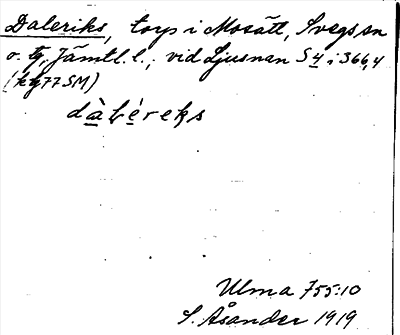 Daleriks, torp i Mosätt, Svegs sn
o. tg, Jämtl. l.; vid Ljusnan S 4 i 366,4
(kg 77 SM)
dàléreks
Ulma 755:10
S. Åsander 1919